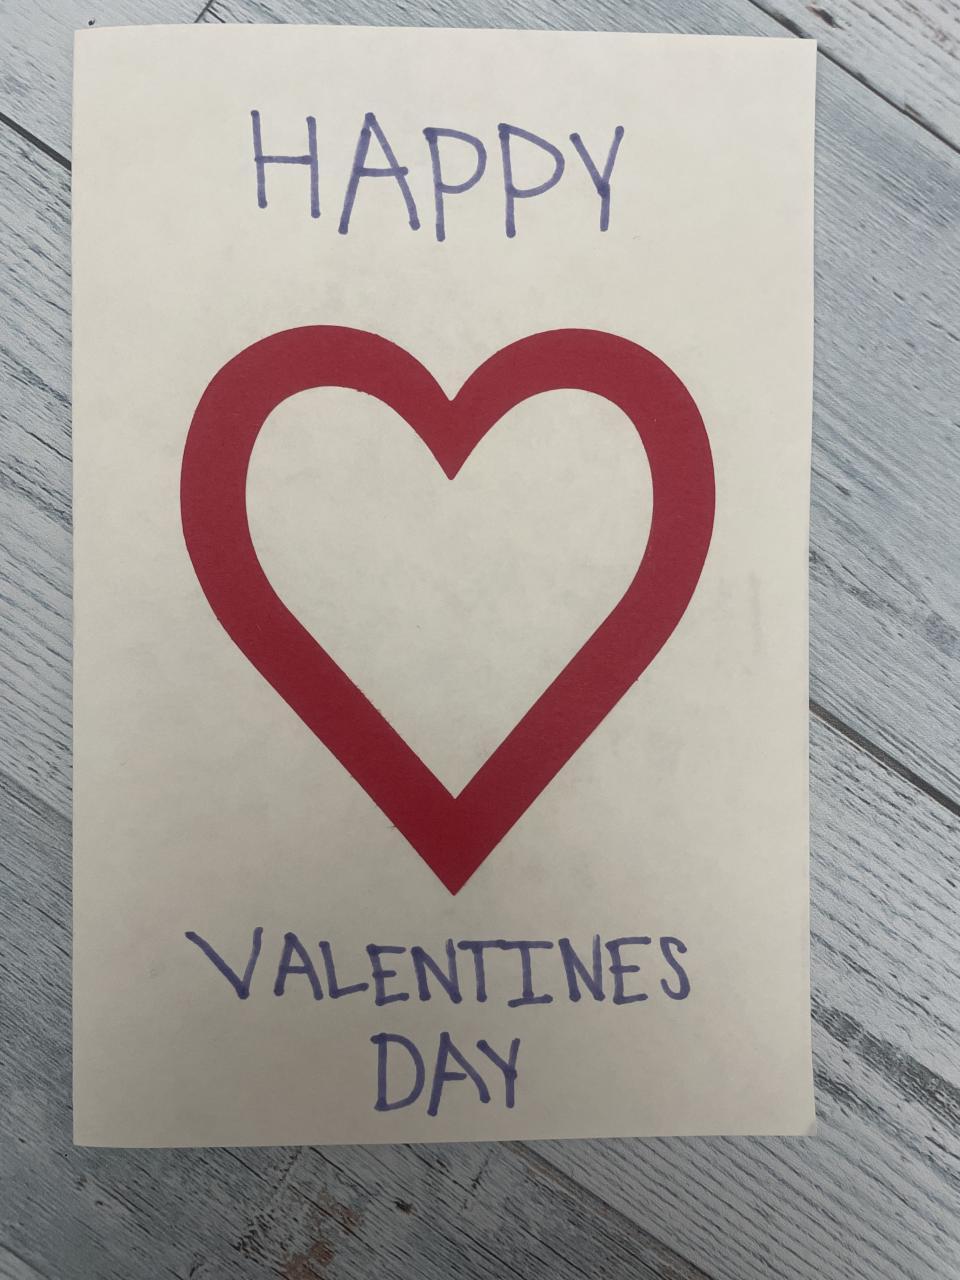 HAPPY
VALENTINES
DAY